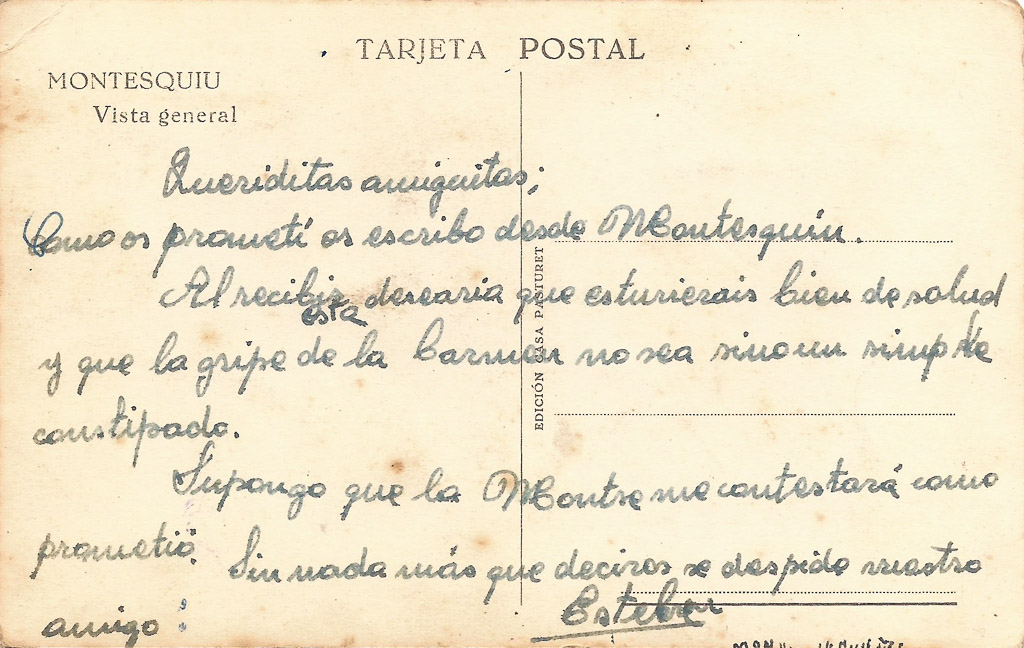 TARJETA POSTAL
MONTESQUIU
Vista general
Queriditas amiguitas;
Como os prometí os escribo desde Montesquíu.
Al recibir esta desearia que estuvierais bien de salud
y que la gripe de la Carmen no sea sino un simple
constipado.
Supongo que la Montse me contestará como
prometió.
Sin nada más que deciros se despide vuestro
amigo:
Esteban
EDICIÓN CASA PASTURET